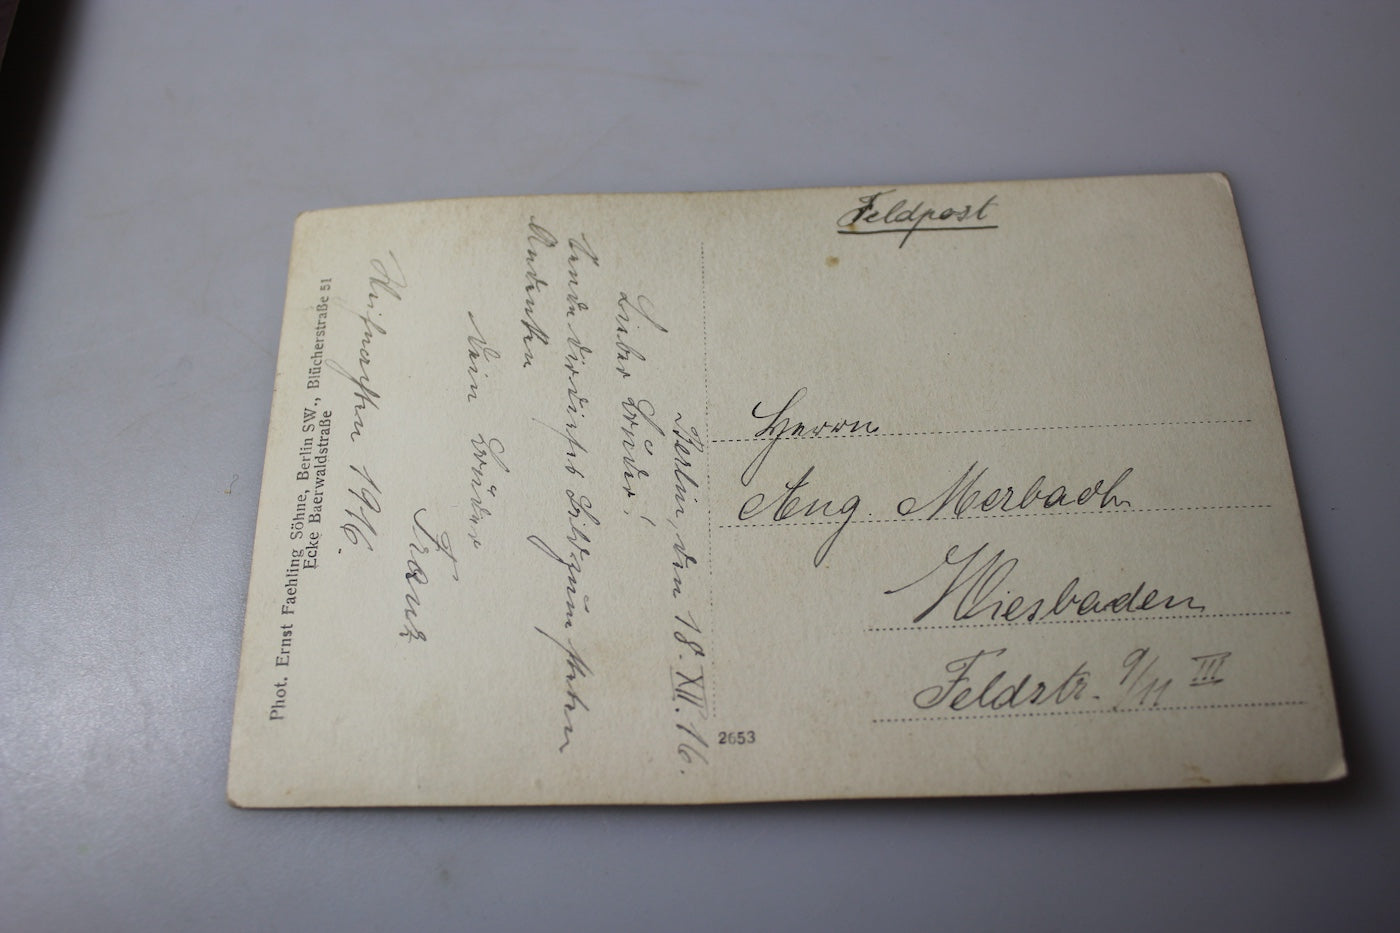 Feldpost
Herrn
Aug. Merbach
Wiesbaden
Feldstr. 9/11 III
2653
Berlin, den 18. XII. 16.
Lieber Brüder!
Sende Dir dieses Bild zum steten
Andenken
Dein Brüder
Franz
Weihnachten 1916.
Phot. Ernst Faehling Söhne, Berlin SW., Blücherstraße 51
Ecke Baerwaldstraße